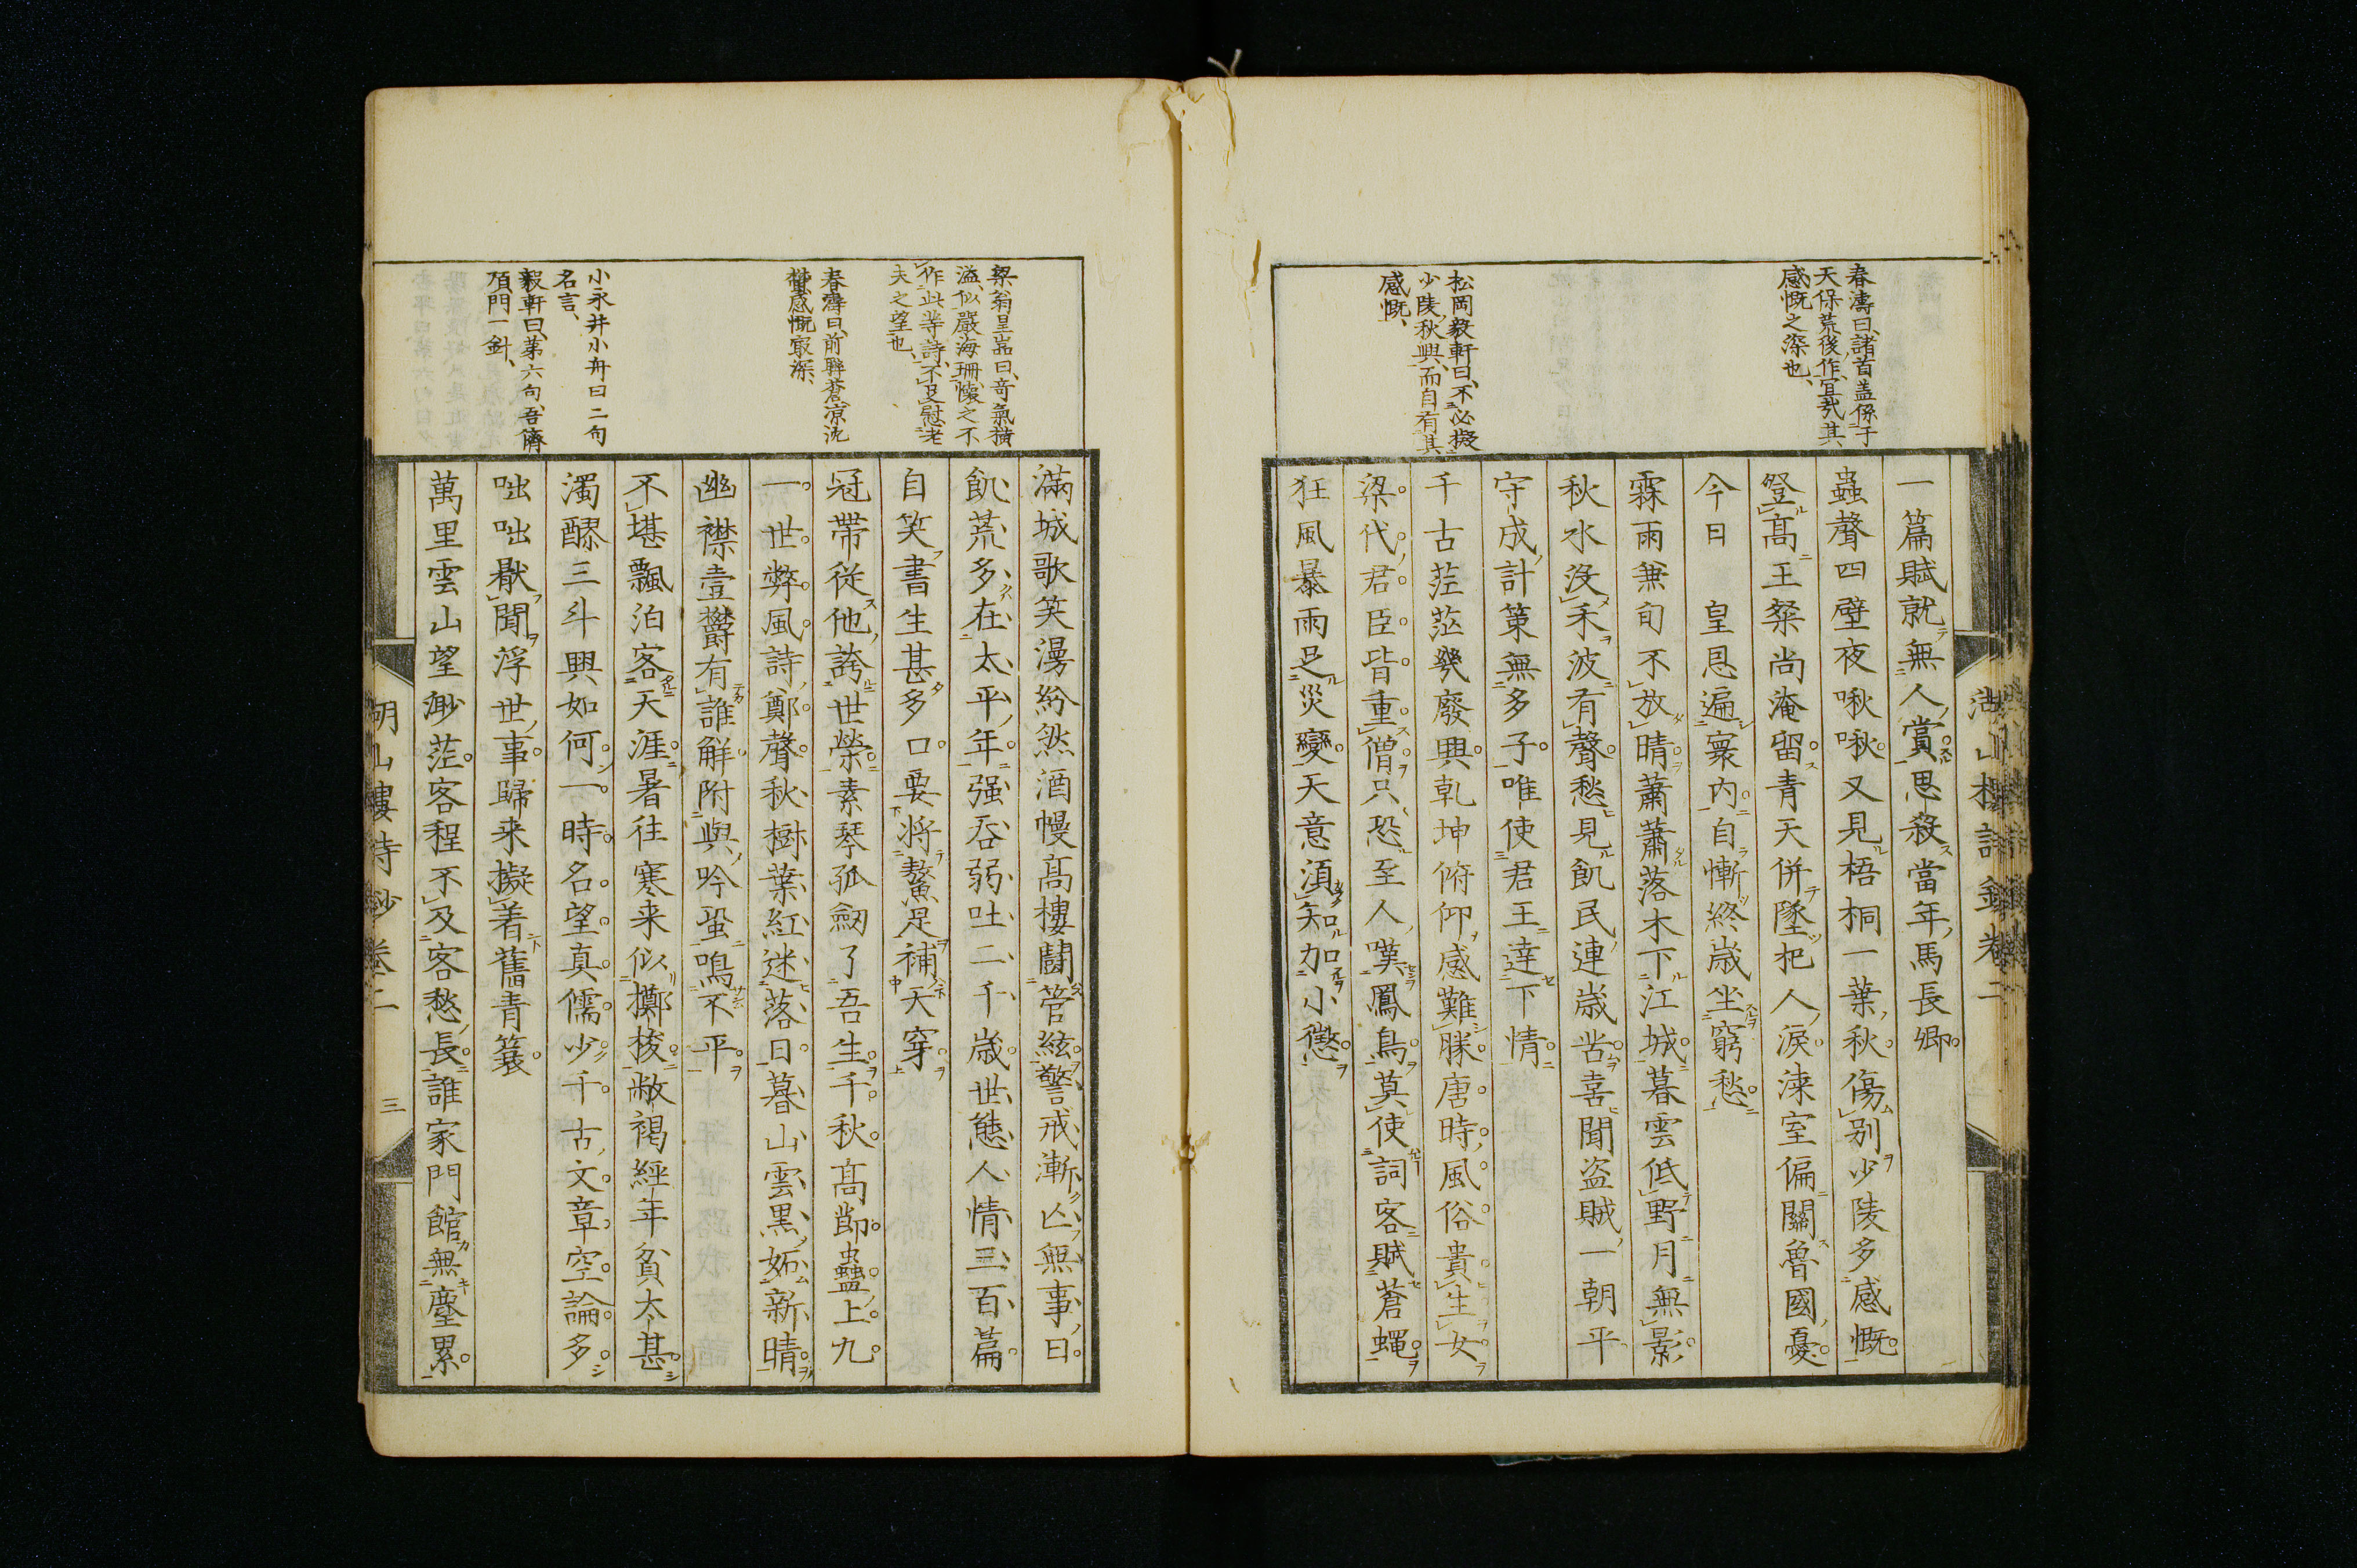 春濤曰、諸首盖係于
天保荒後作、宜哉其
感慨之深也、
松岡毅軒曰、不必擬
少陵秋興、而自有其
感慨、
一篇賦就無人賞思殺當年馬長卿
蟲聲四壁夜啾啾又見梧桐一葉秋傷別少陵多感慨
登高王粲尚淹留青天併墜把人淚漆室偏關魯國憂
今日 皇恩遍寰內自慚終歲坐窮愁
霖雨兼旬不放晴蕭蕭落木下江城暮雲低野月無影
秋水沒禾波有聲愁見飢民連歲苦喜聞盜賊一朝平
守成計策無多子唯使君王達下情
千古茫茫幾廢興乾坤俯仰感難勝唐時風俗貴生女
梁代君臣皆重僧只恐至人嘆鳳鳥莫使詞客賦蒼蠅
狂風暴雨足災變天意須知加小懲
梁翁星嵓曰、奇氣橫
溢、似嚴海珊、懷之不
作此等詩、不足慰老
夫之望也、
春濤曰、前聯蒼凉沈
欝感慨㝡深、
小永井小舟曰二句
名言、
毅軒曰、第六句、吾儕
頂門一針、
滿城歌笑漫紛然酒幔高樓鬪管絃警戒漸亾無事日
飢荒多在太平年强吞弱吐二千歲世態人情三百篇
自笑書生甚多口要將鰲足補天穿
冠帶從他誇世榮素琴孤劒了吾生千秋高節蠱上九
一世弊風詩鄭聲秋樹葉紅迷落日暮山雲黑妬新晴
幽襟壹欝有誰解附與吟蛩鳴不平
不堪飄泊客天涯暑往寒来似擲梭敝褐經年貧太甚
濁醪三斗興如何一時名望真儒少千古文章空論多
咄咄厭聞浮世事歸来擬着舊青簑
萬里雲山望渺茫客程不及客愁長誰家門館無塵累
湖山樓詩鈔卷二 三